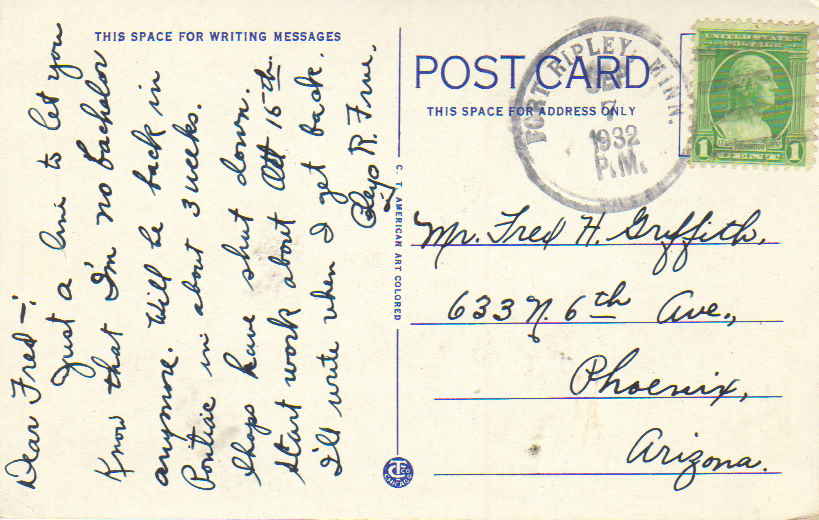 THIS SPACE FOR WRITING MESSAGES
Dear Fred—:
Just a line to let you
Know that I'm no bachelor
anymore. Will be back in
Pontiac in about 3 weeks.
Shops have shut down.
Start work about Oct 15th.
I'll write when I get back.
R. True.
C. T. AMERICAN ART COLORED
CHICAGO
POST CARD
THIS SPACE FOR ADDRESS ONLY
FORT RIPLEY, MINN.
SEP
7
1932
P.M.
UNITED STATES
POSTAGE
1 1
Mr. Fred H. Griffith,
633 N. 6th Ave.,
Phoenix,
Arizona.